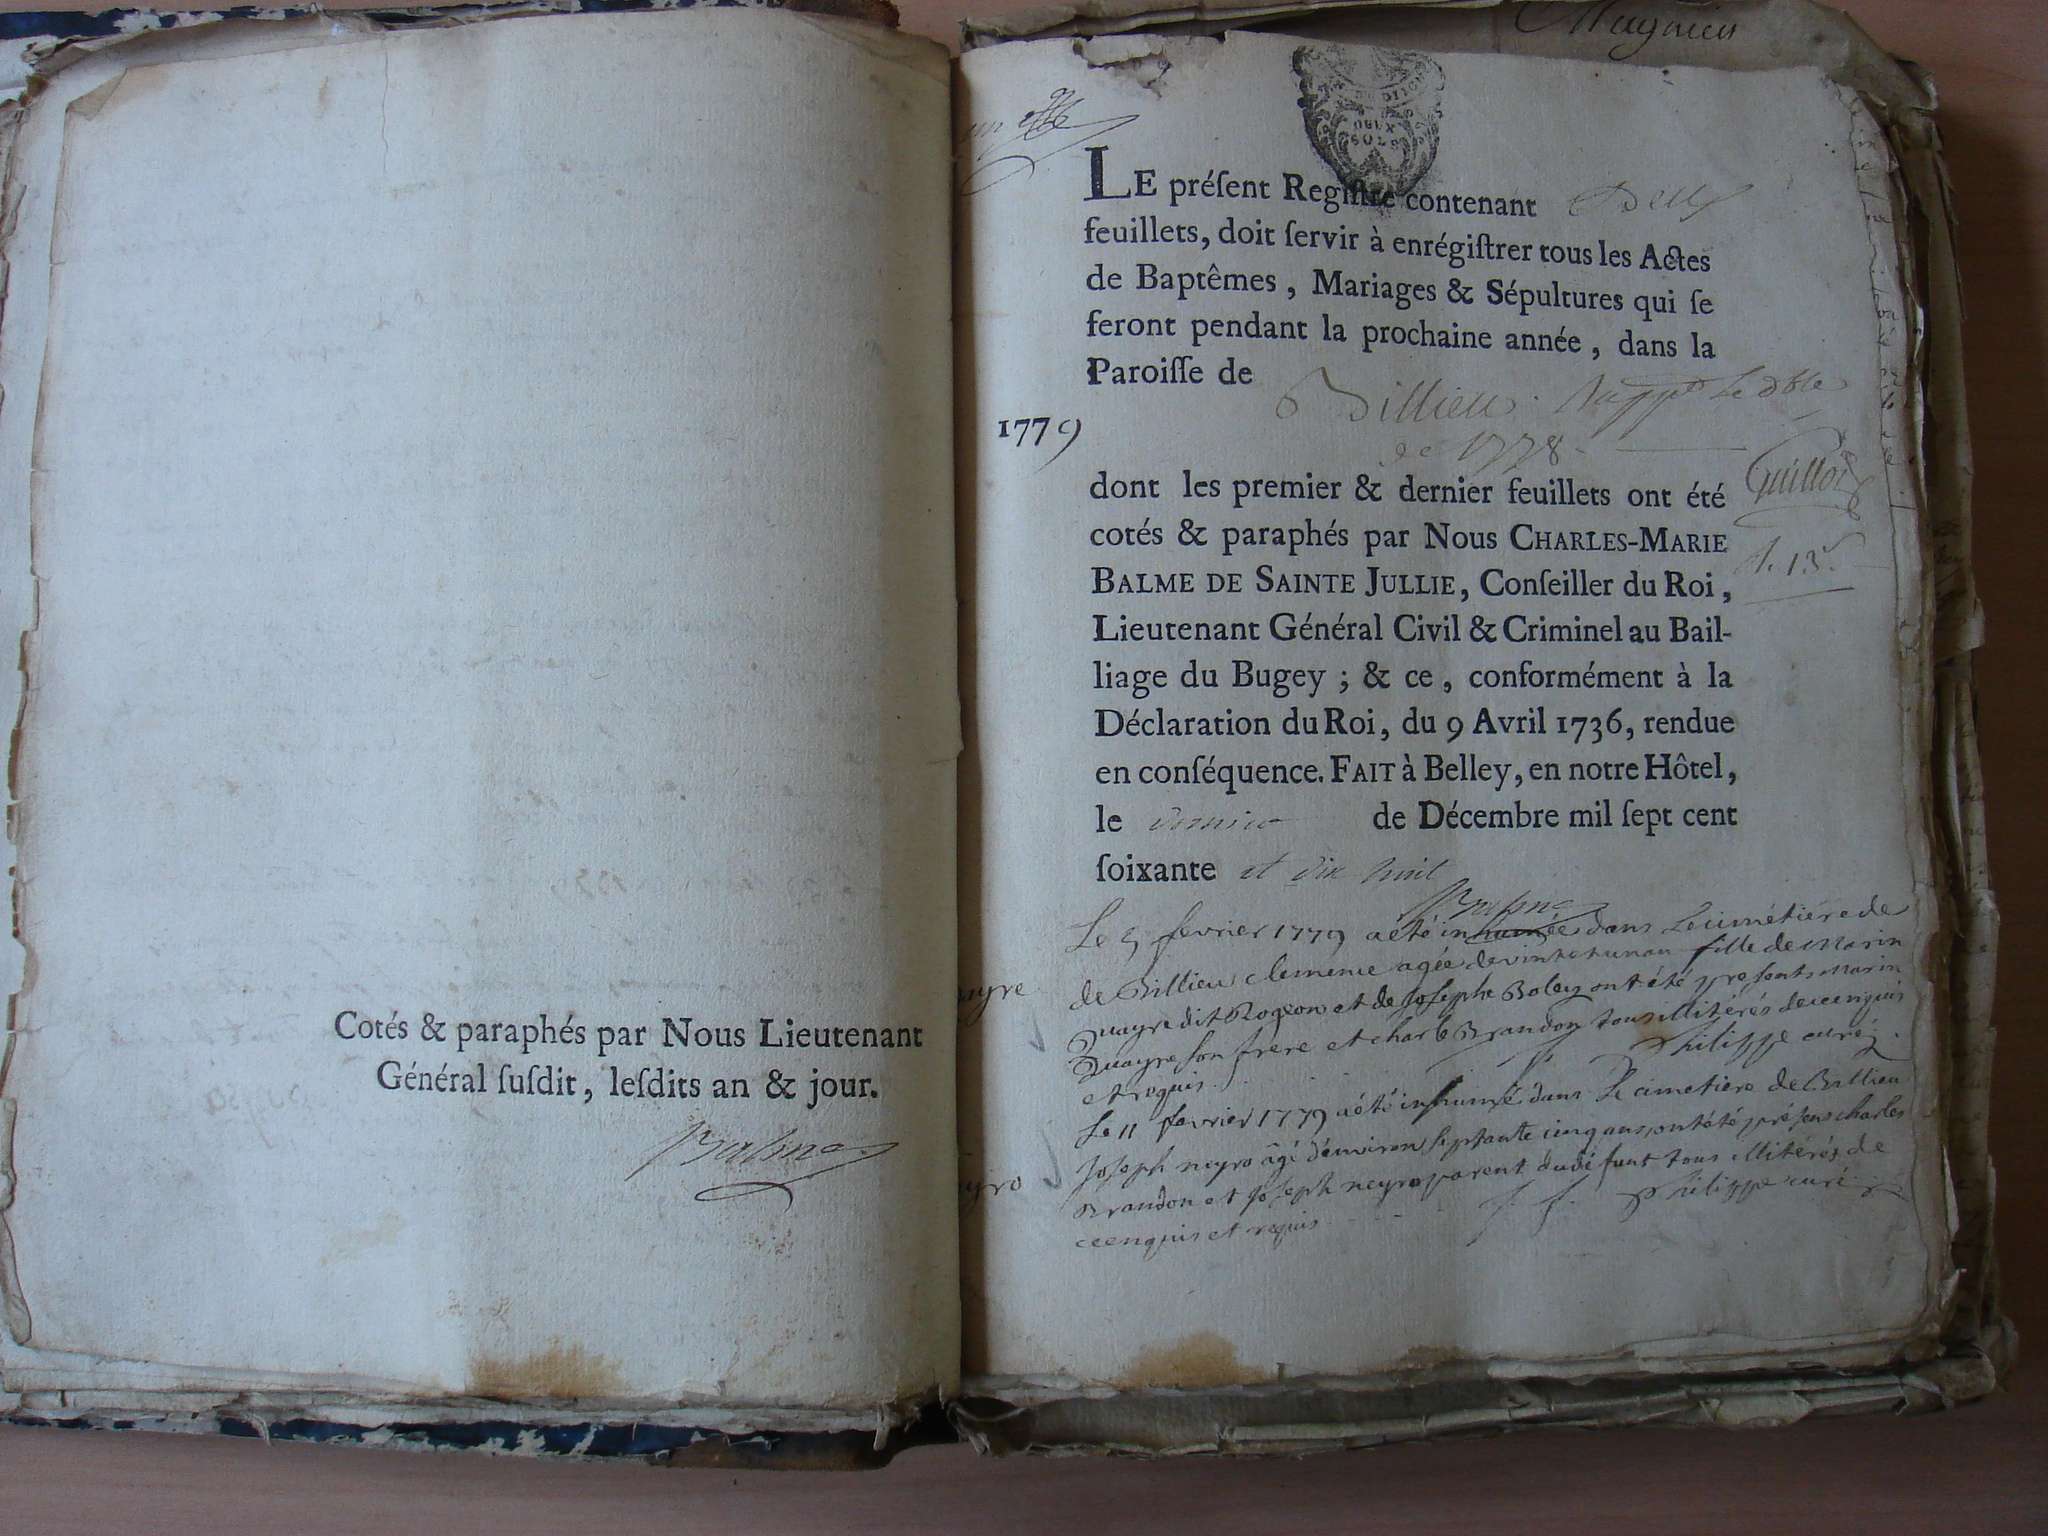 Cotés & paraphés par Nous Lieutenant
Général ſuſdit, leſdits an & jour.
Balme
Magnien
LE préſent Regiſtre contenant Deux
feuillets, doit ſervir à enrégiſtrer tous les Actes
de Baptêmes, Mariages & Sépultures qui ſe
feront pendant la prochaine année, dans la
Paroiſſe de
Billieu. Supp.t le dble
1779
de 1778
dont les premier & dernier feuillets ont été
Guillot
cotés & paraphés par Nous CHARLES-MARIE
BALME DE SAINTE JULLIE, Conſeiller du Roi,
Lieutenant Général Civil & Criminel au Bail-
liage du Bugey ; & ce, conformément à la
Déclaration du Roi, du 9 Avril 1736, rendue
en conſéquence. FAIT à Belley, en notre Hôtel,
le de Décembre mil ſept cent
ſoixante et dix huit
Balme
Le 5 fevrier 1779 a été inhumée dans le cimétiére de
de Billieu clemence agée de vint et un an fille de Marin
Quayre dit Rogeon et de Joſephe Boley ont été preſents Marin
Quayre ſon frere et charle Brandon tous illitérés de ce enquis
et requis. Philippe curé.
Le 11 fevrier 1779 a été inhumé dans le cimetiere de Billieu
Joſeph neyro âgé d'environ ſeptante cinq ans, ont été préſens charles
Brandon et Joſeph neyro parent du défunt tous illitérés de
ce enquis et requis Philippe curé
ayre
yro